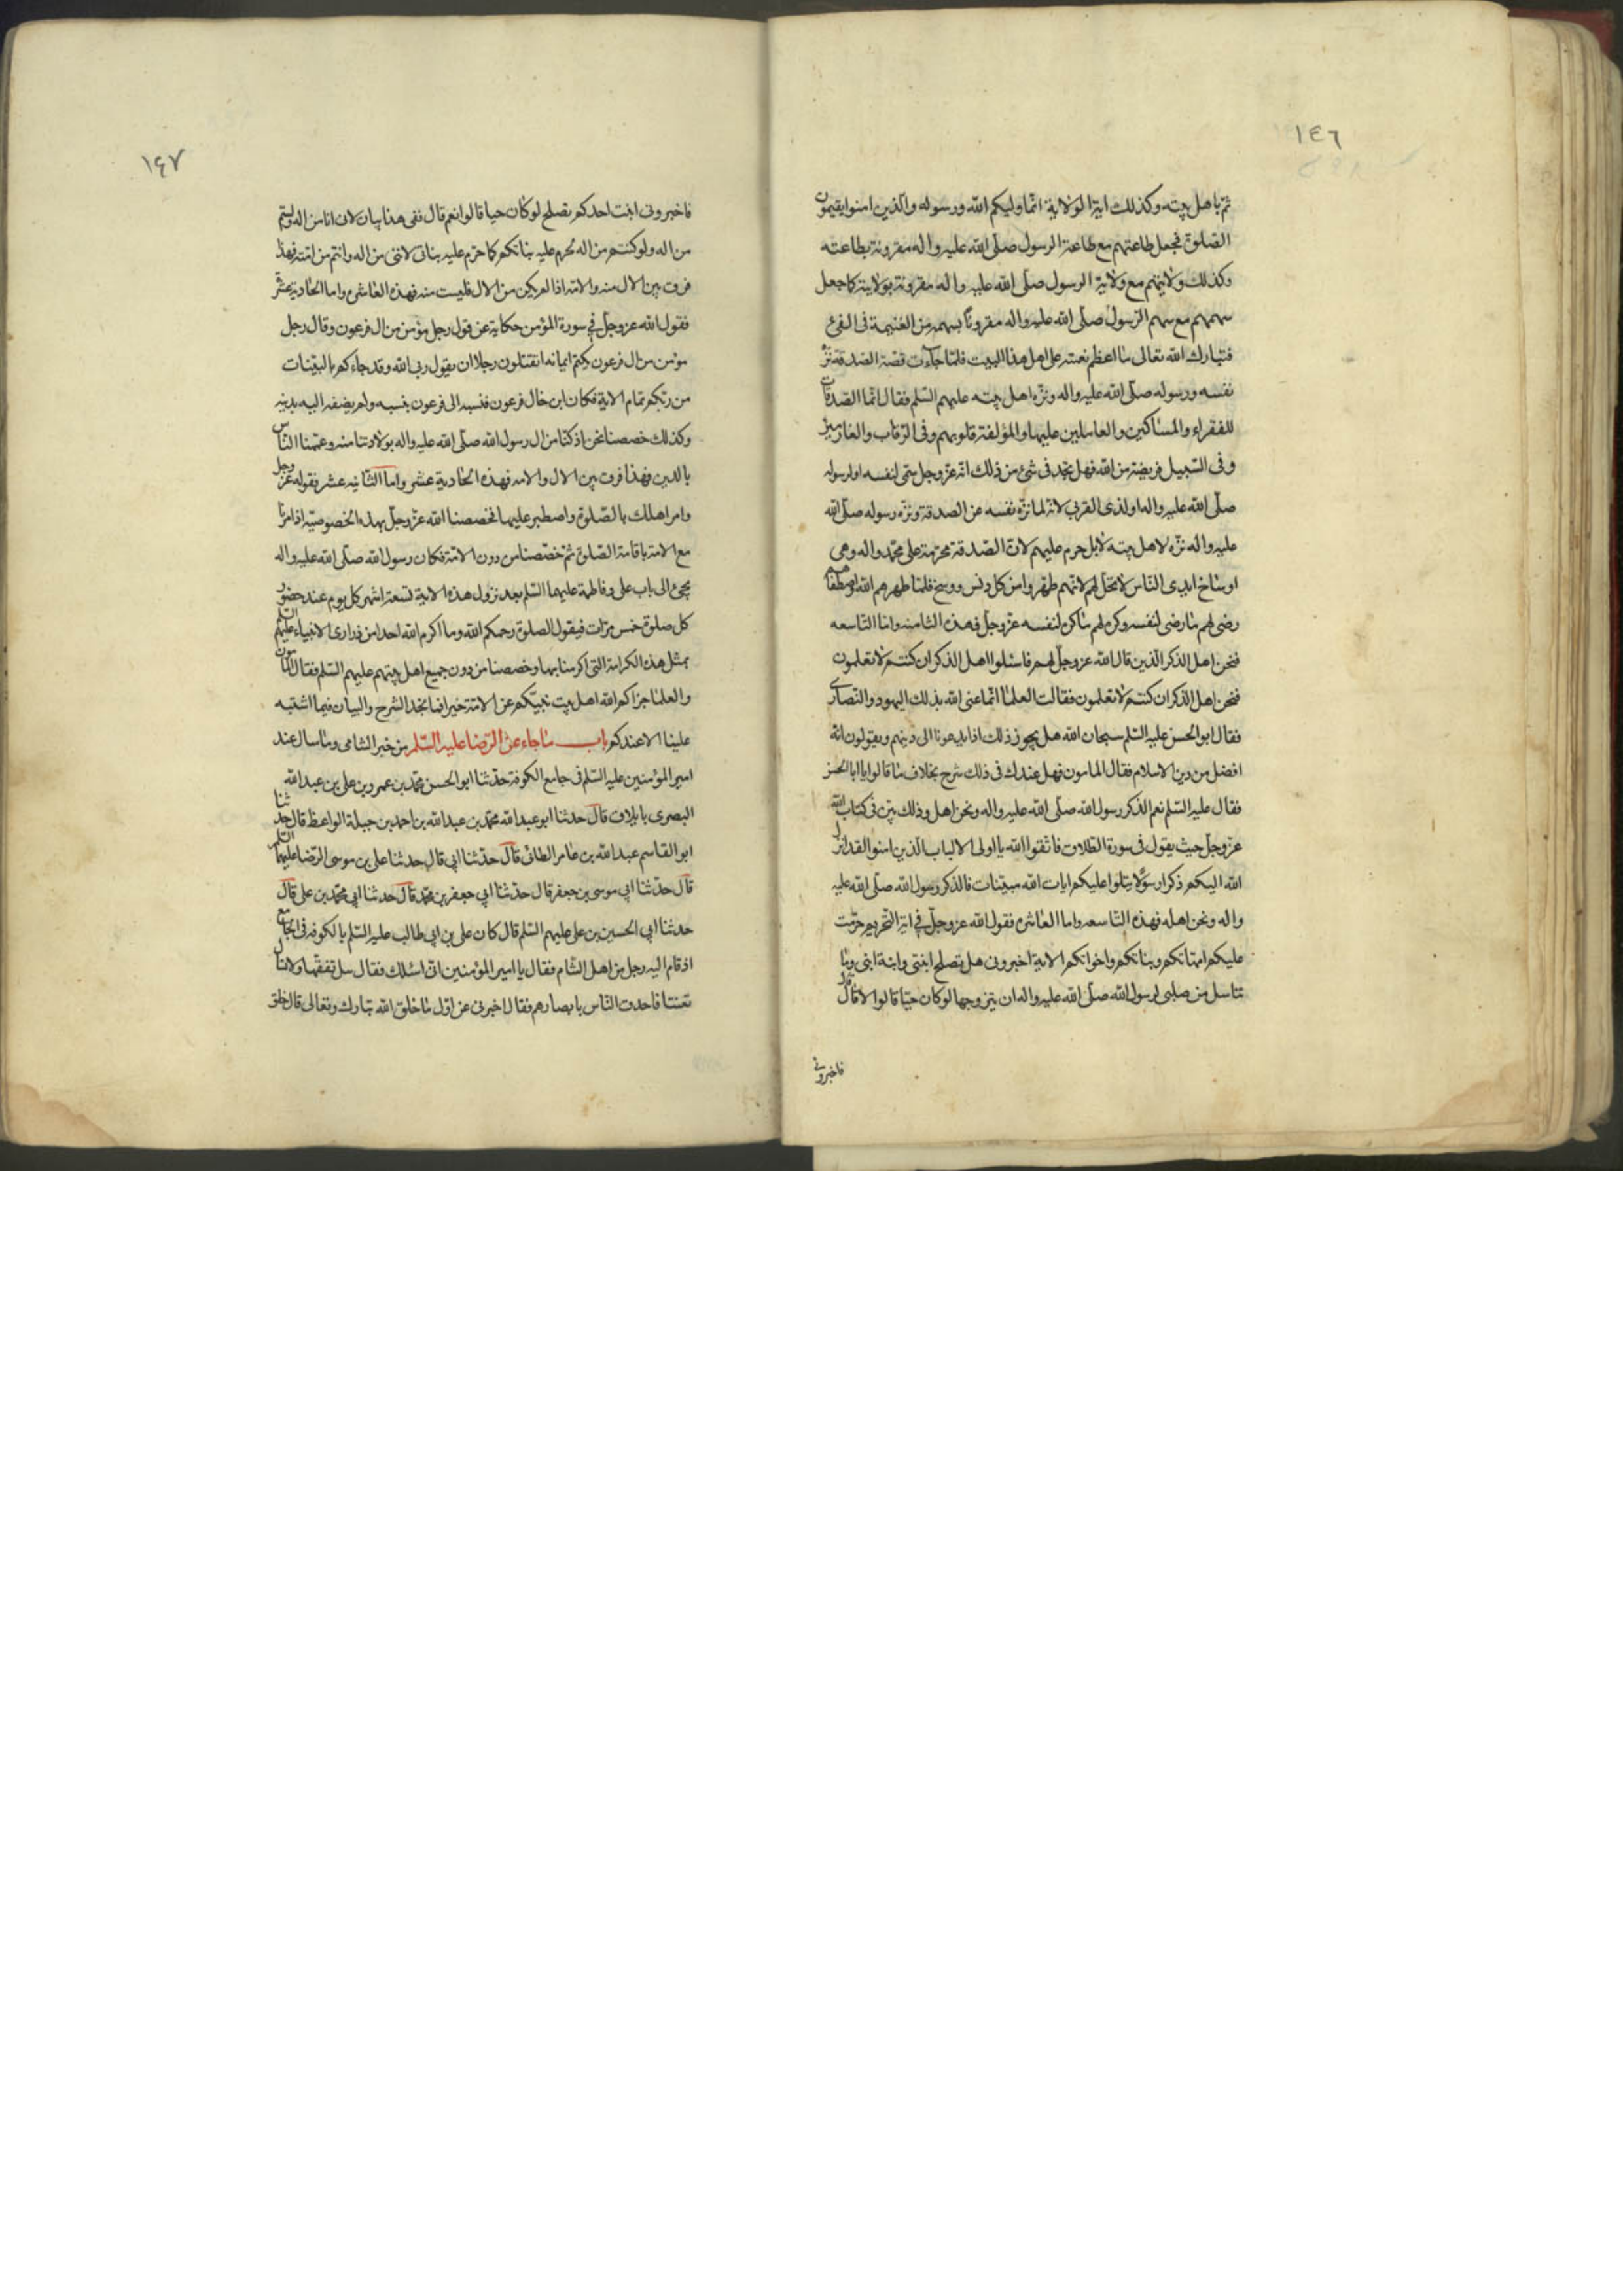 ١٤٦
ثم باهل بيته وكذلك اية الولاية انما وليكم الله ورسوله والذين امنوا يقيمون
الصلوة فجعل طاعتهم مع طاعة الرسول صلى الله عليه واله مقرونة بطاعته
وكذلك ولايتهم مع ولاية الرسول صلى الله عليه واله مقرونة بولايته كما جعل
سهمهم مع سهم الرسول صلى الله عليه واله مقرونا بسهمه من الغنيمة فى الفئ
فتبارك الله تعالى ما اعظم نعمته على اهل هذا البيت فلما جاءت قصة الصدقة نزه
نفسه ورسوله صلى الله عليه واله ونزه اهل بيته عليهم السلم فقال انما الصدقات
للفقراء والمساكين والعاملين عليها والمؤلفة قلوبهم وفى الرقاب والغارمين
وفى السبيل فريضة من الله فهل تجد فى شئ من ذلك انه عز وجل سمى لنفسه او لرسوله
صلى الله عليه واله او لذى القربى لانه لما نزه نفسه عن الصدقة ونزه رسوله صلى الله
عليه واله نزه لاهل بيته لا بل حرم عليهم لان الصدقة محرمة على محمد واله وهى
اوساخ ايدى الناس لا تحل لهم لانهم طهروا من كل دنس ووسخ فلما طهرهم الله اصطفاهم
رضى لهم ما رضى لنفسه وكره لهم ما كره لنفسه عز وجل فهذه الثامنه واما التاسعه
فنحن اهل الذكر الذين قال الله عز وجل لهم فاسئلوا اهل الذكر ان كنتم لا تعلمون
فنحن اهل الذكر ان كنتم لا تعلمون فقالت العلما انما عنى الله بذلك اليهود والنصارى
فقال ابو الحسن عليه السلم سبحان الله هل يجوز ذلك اذا يدعونا الى دينهم ويقولون انه
افضل من دين الاسلام فقال المامون فهل عندك فى ذلك شرح بخلاف ما قالوا يا ابا الحسن
فقال عليه السلم نعم الذكر رسول الله صلى الله عليه واله ونحن اهل وذلك بين فى كتاب الله
عز وجل حيث يقول فى سورة الطلاق فاتقوا الله يا اولى الالباب الذين امنوا قد انزل
الله اليكم ذكرا رسولا يتلوا عليكم ايات الله مبينات فالذكر رسول الله صلى الله عليه
واله ونحن اهله فهذه التاسعه واما العاشره فقول الله عز وجل فى اية التحريم حرمت
عليكم امهاتكم وبناتكم واخواتكم الاية اخبرونى هل تصلح ابنتى وابنة ابنى وما
تناسل من صلبى لرسول الله صلى الله عليه واله ان يتزوجها لو كان حيا قالوا لا قال
فاخبرونى
١٤٧
فاخبرونى ابنت احدكم تصلح لو كان حيا قالوا نعم قال ففى هذا بيان لان انا من اله ولستم
من اله ولو كنتم من اله لحرم عليه بناتكم كما حرم عليه بناتى لاننى من اله وانتم من امته فهذا
فرق بين الال منه والامة اذا لم يكن من الال فليست منه فهذه العاشره واما الحادية عشر
فقول الله عز وجل فى سورة المؤمن حكاية عن قول رجل مؤمن من ال فرعون وقال رجل
مؤمن من ال فرعون يكتم ايمانه اتقتلون رجلا ان يقول ربى الله وقد جاءكم بالبينات
من ربكم تمام الاية فكان ابن خال فرعون فنسبه الى فرعون بنسبه ولم يضفه اليه بدينه
وكذلك خصصنا نحن اذ كنا من ال رسول الله صلى الله عليه واله بولادتنا منه وعممنا الناس
بالدين فهذا فرق بين الال والامه فهذه الحادية عشر واما الثانيه عشر فقوله عز وجل
وامر اهلك بالصلوة واصطبر عليها فخصصنا الله عز وجل بهذه الخصوصيه اذ امرنا
مع الامة باقامة الصلوة ثم خصصنا من دون الامة فكان رسول الله صلى الله عليه واله
يجئ الى باب على وفاطمة عليهما السلم بعد نزول هذه الاية تسعة اشهر كل يوم عند حضور
كل صلوة خمس مرات فيقول الصلوة رحمكم الله وما اكرم الله احدا من ذرارى الانبياء عليهم السلم
بمثل هذه الكرامة التى اكرمنا بها وخصصنا من دون جميع اهل بيتهم عليهم السلم فقال المامون
والعلما جزاكم الله اهل بيت نبيكم عن الامة خيرا فما نجد الشرح والبيان فيما اشتبه
علينا الا عندكم باب ما جاء عن الرضا عليه السلم من خبر الشامى وما سال عنه
امير المؤمنين عليه السلم فى جامع الكوفة حدثنا ابو الحسن محمد بن عمرو بن على بن عبد الله
البصرى بايلاق قال حدثنا ابو عبد الله محمد بن عبد الله بن احمد بن جبلة الواعظ قال حدثنا
ابو القاسم عبد الله بن عامر الطائى قال حدثنا ابى قال حدثنا على بن موسى الرضا عليهما السلم
قال حدثنا ابى موسى بن جعفر قال حدثنا ابى جعفر بن محمد قال حدثنا ابى محمد بن على قال
حدثنا ابى الحسين بن على عليهم السلم قال كان على بن ابى طالب عليه السلم بالكوفه فى الجامع
اذ قام اليه رجل من اهل الشام فقال يا امير المؤمنين انى اسئلك فقال سل تفقها ولا تسال
تعنتا فاحدق الناس بابصارهم فقال اخبرنى عن اول ما خلق الله تبارك وتعالى قال خلق